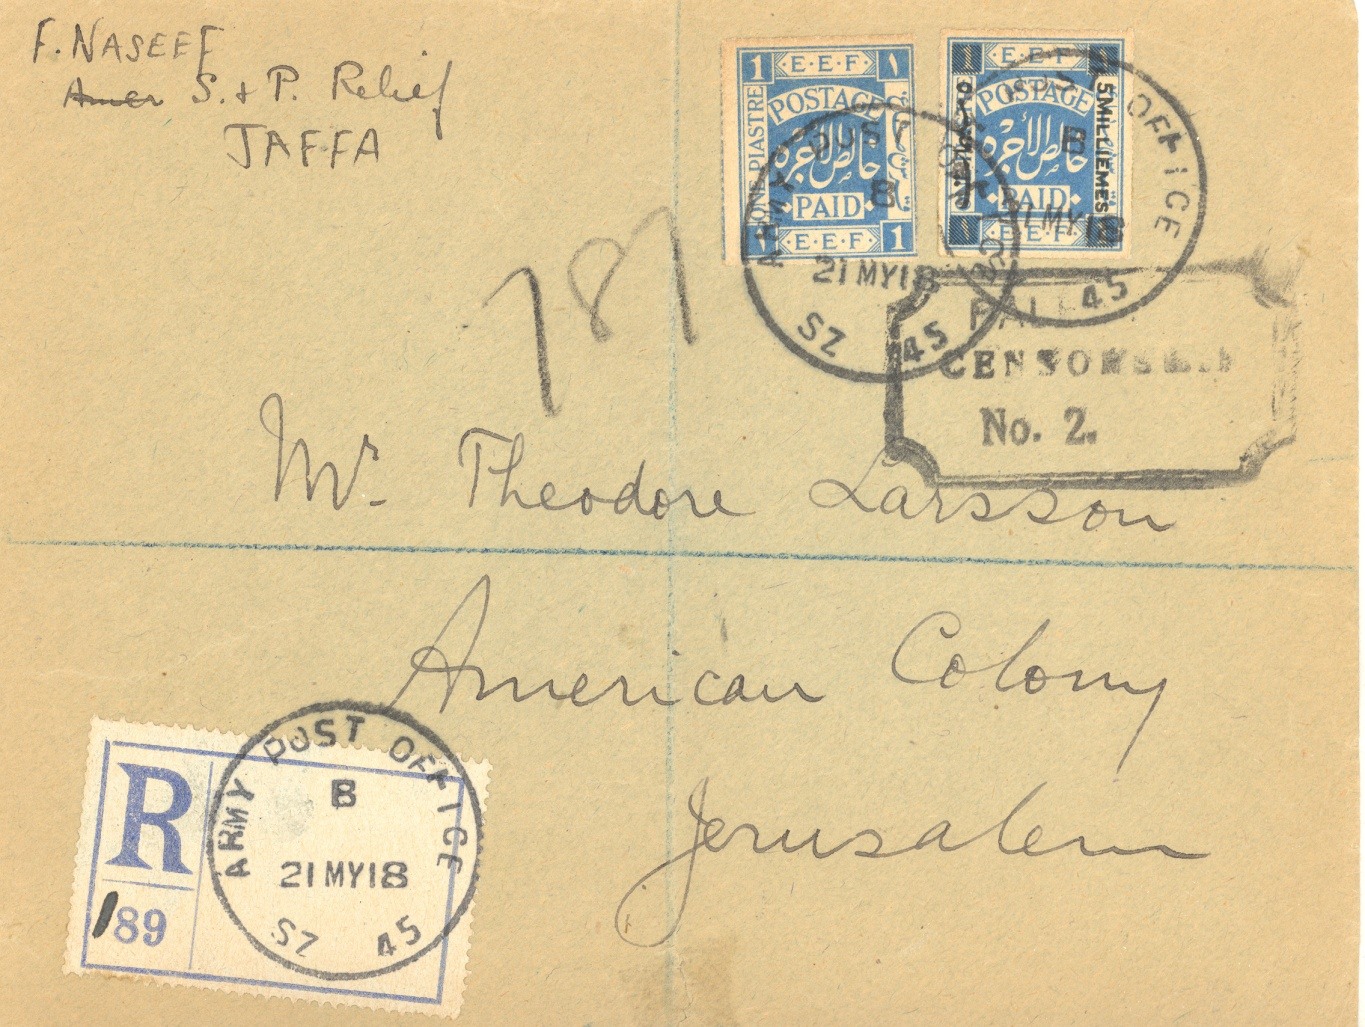 F. NASEEF
Amer S. + P. Relief
JAFFA
1 E·E·F ١
POSTAGE
ONE PIASTRE
خالص الأجره
PAID
١ E·E·F 1
E·E·F
POSTAGE
5 MILLIEMES
خالص الأجره
PAID
E·E·F
ARMY POST OFFICE
B
21 MY 18
SZ 45
POST OFFICE
B
21 MY 18
45
CENSORSHIP
No. 2.
Mr. Theodore Larsson
American Colony
Jerusalem
R
189
ARMY POST OFFICE
B
21 MY 18
SZ 45